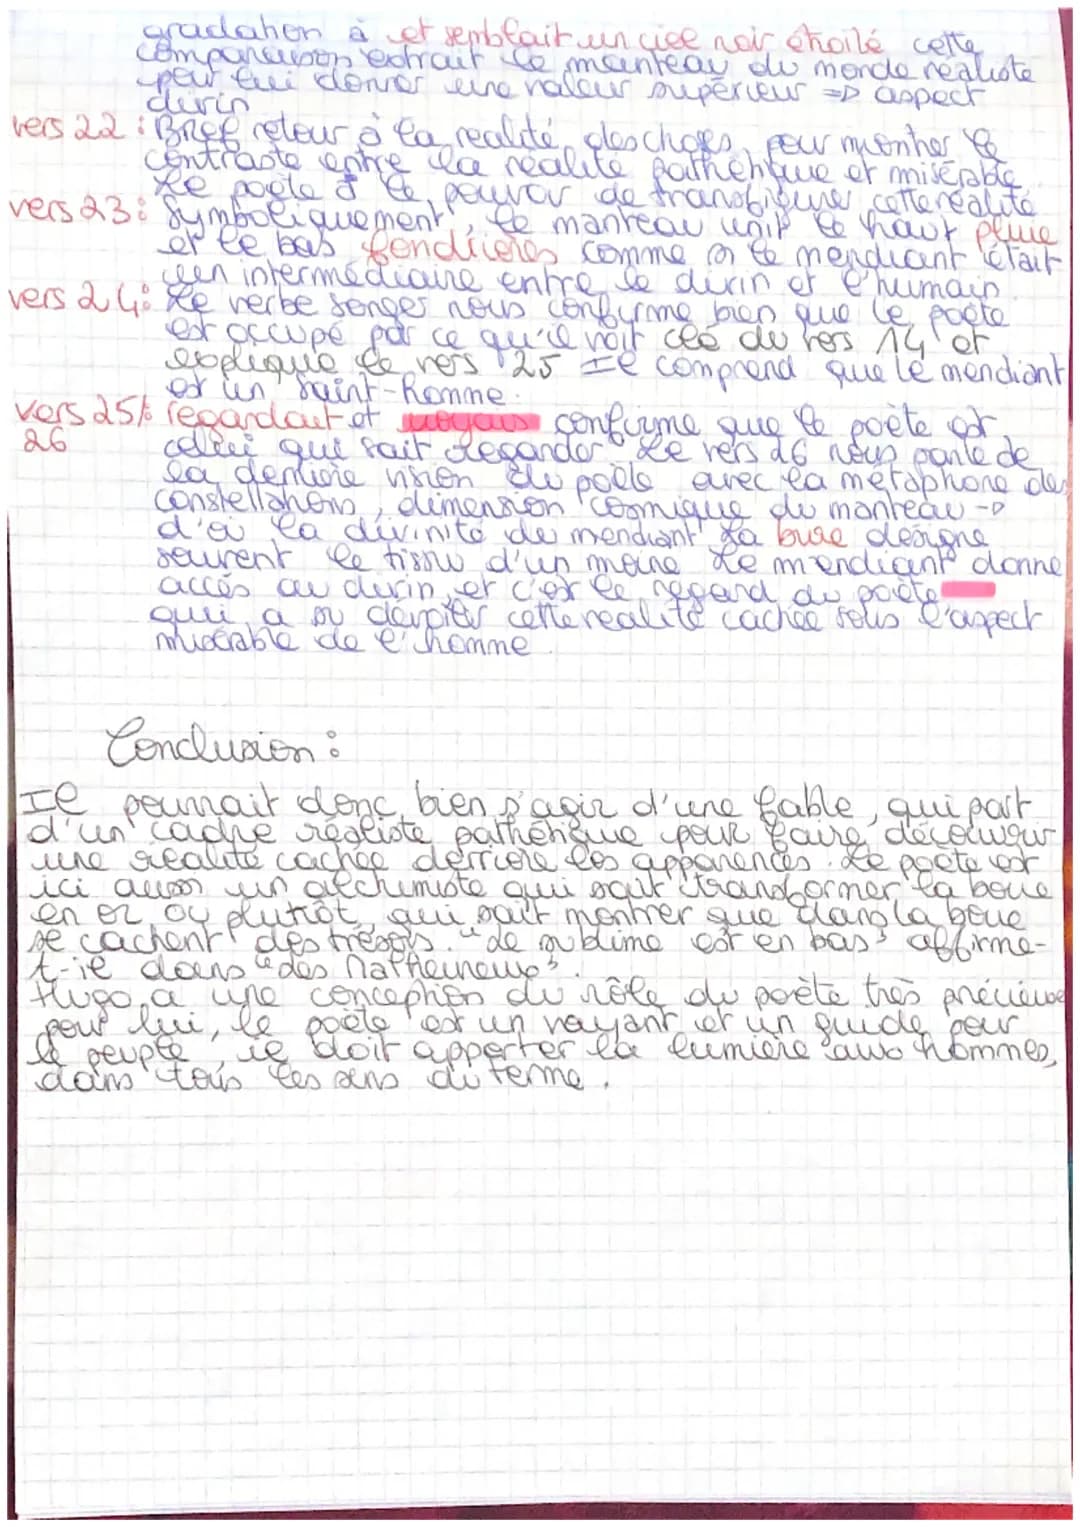 gradation à et semblait un ciel noir étoilé cette
comparaison extrait le manteau du monde réaliste
pour lui donner une valeur supérieur => aspect
divin
vers 22 : Bref retour à la réalité des choses, pour montrer le
contraste entre la réalité pathétique et misérable.
Le poète à le pouvoir de transfigurer cette réalité
vers 23 : Symboliquement, le manteau unit le haut pluie
et le bas fondrières comme si le mendiant était
un intermédiaire entre le divin et l'humain.
vers 24 : Le verbe songer nous confirme bien que le poète
est occupé par ce qu'il voit clé du vers 14 et
explique le vers 25 Il comprend que le mendiant
est un saint-homme.
vers 25/ : regardait et voyais confirme que le poète est
26 celui qui sait regarder Le vers 26 nous parle de
la dernière vision du poète avec la métaphore des
constellations, dimension cosmique du manteau ->
d'où la divinité du mendiant La bure désigne
souvent le tissu d'un moine Le mendiant donne
accès au divin, et c'est le regard du poète
qui a su deviner cette réalité cachée sous l'aspect
misérable de l'homme
Conclusion :
Il pourrait donc bien s'agir d'une fable, qui part
d'un cadre réaliste pathétique pour faire découvrir
une réalité cachée derrière les apparences. Le poète est
ici aussi un alchimiste qui sait transformer la boue
en or ou plutôt qui sait montrer que dans la boue
se cachent des trésors. "Le sublime est en bas" affirme-
t-il dans "des Malheureux".
Hugo a une conception du rôle du poète très précieuse
pour lui, le poète est un voyant et un guide pour
le peuple, il doit apporter la lumière aux hommes,
dans tous les sens du terme.